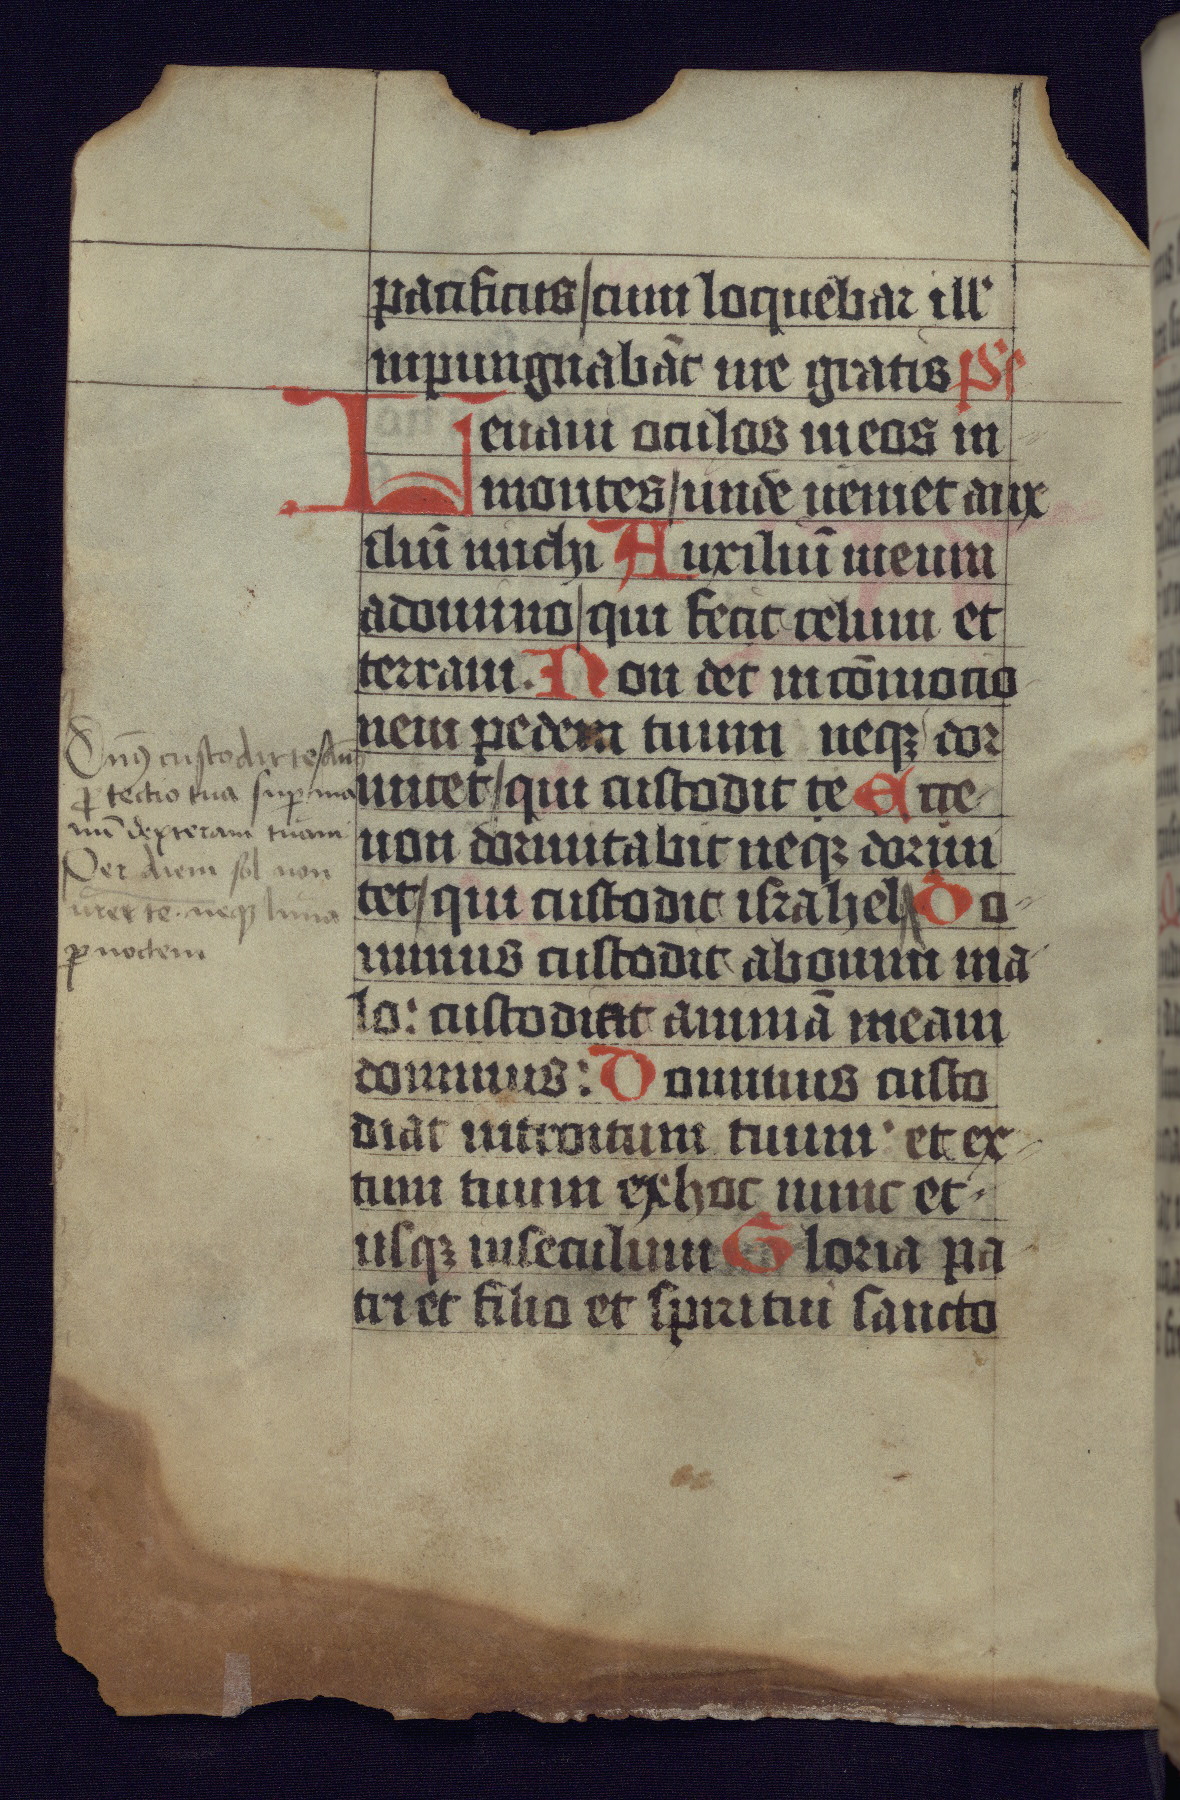 pacificus/cum loquebar ill'
inpungnabāt me gratis ps
Leuam oculos meos in
montes/unde ueniet aux
iliū michi Auxiliū meum
adomino/qui fecit celum et
terram. Non det incōmocio
nem pedem tuum neqꝫ dor
mitet/qui custodit te Ecce
non dormitabit neqꝫ dormi
tet/qui custodit israhel Do
minus custodit abomni ma
lo: custodiat animā meam
dominus: Dominus custo
diat introitum tuum· et ex
tum tuum exhoc nunc et
usqꝫ inseculum Gloria pa
tri et filio et spiritui sancto
Dn̄s custodit te/dn̄s
ꝓtectio tua suꝑ ma
nū dexteram tuam
Per diem sol non
uret te. neqꝫ luna
ꝑ noctem